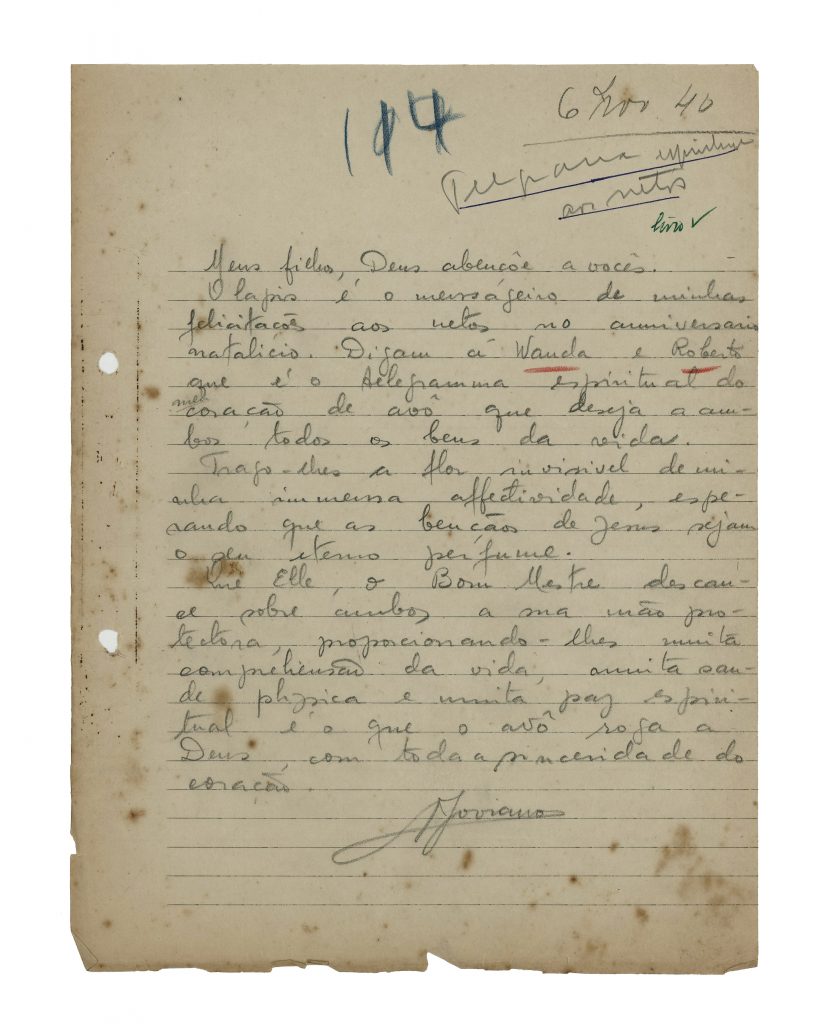 6 Nov 40
144
espiritual
aos netos
livro ✓
Meus filhos, Deus abençôe a vocês.
O lapis é o mensageiro de minhas
felicitações aos netos no anniversario
natalicio. Digam á Wanda e Roberto
que é o telegramma espiritual do
meu
coração de avô que deseja a am-
bos todos os bens da vida.
Trago-lhes a flor invisivel de mi-
nha immensa affectividade, espe-
rando que as bençãos de Jesus sejam
o seu eterno perfume.
Que Elle, o Bom Mestre descan-
se sobre ambos a sua mão pro-
tectora, proporcionando-lhes muita
comprehensão da vida, muita sau-
de physica e muita paz espiri-
tual é o que o avô roga a
Deus, com toda a sinceridade do
coração.